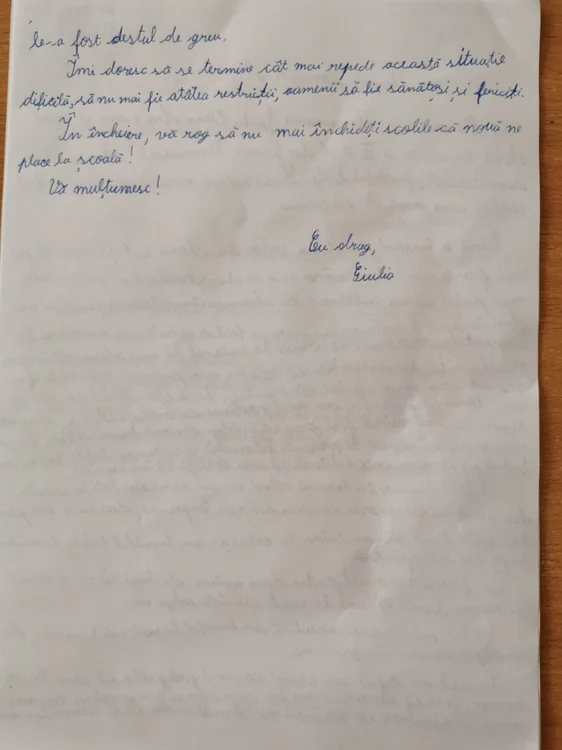 le-a fost destul de greu.
Îmi doresc să se termine cât mai repede această situație
dificilă, să nu mai fie atâtea restricții, oamenii să fie sănătoși și fericiți.
În încheiere, vă rog să nu mai închideți școlile că nouă ne
place la școală!
Vă mulțumesc!
Cu drag,
Giulia